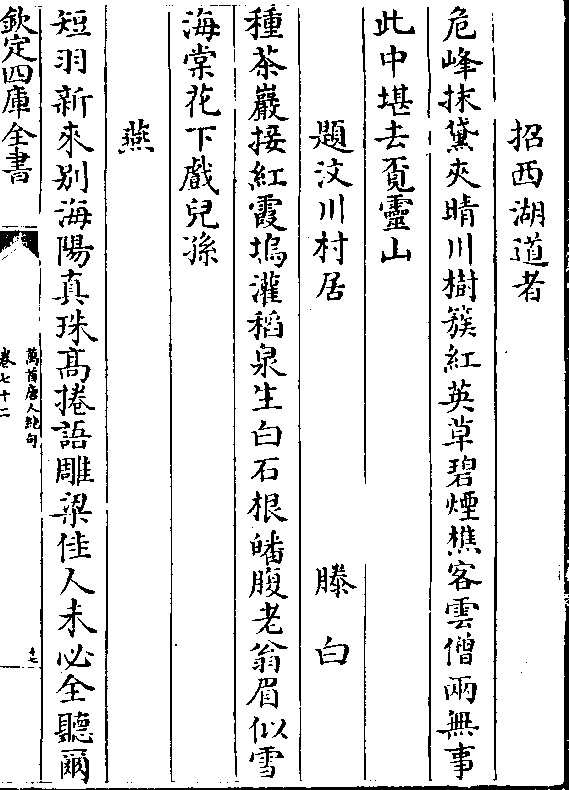 招西湖道者
危峰抹黛夾晴川樹簇紅英草碧煙樵客雲僧兩無事
此中堪去覔靈山
題汶川村居　滕白
種茶巖接紅霞塢灌稻泉生白石根皤腹老翁眉似雪
海棠花下戲兒孫
燕
短羽新來别海陽真珠髙捲語雕梁佳人未必全聽爾
欽定四庫全書
萬首唐人絶句
卷七十二
十七